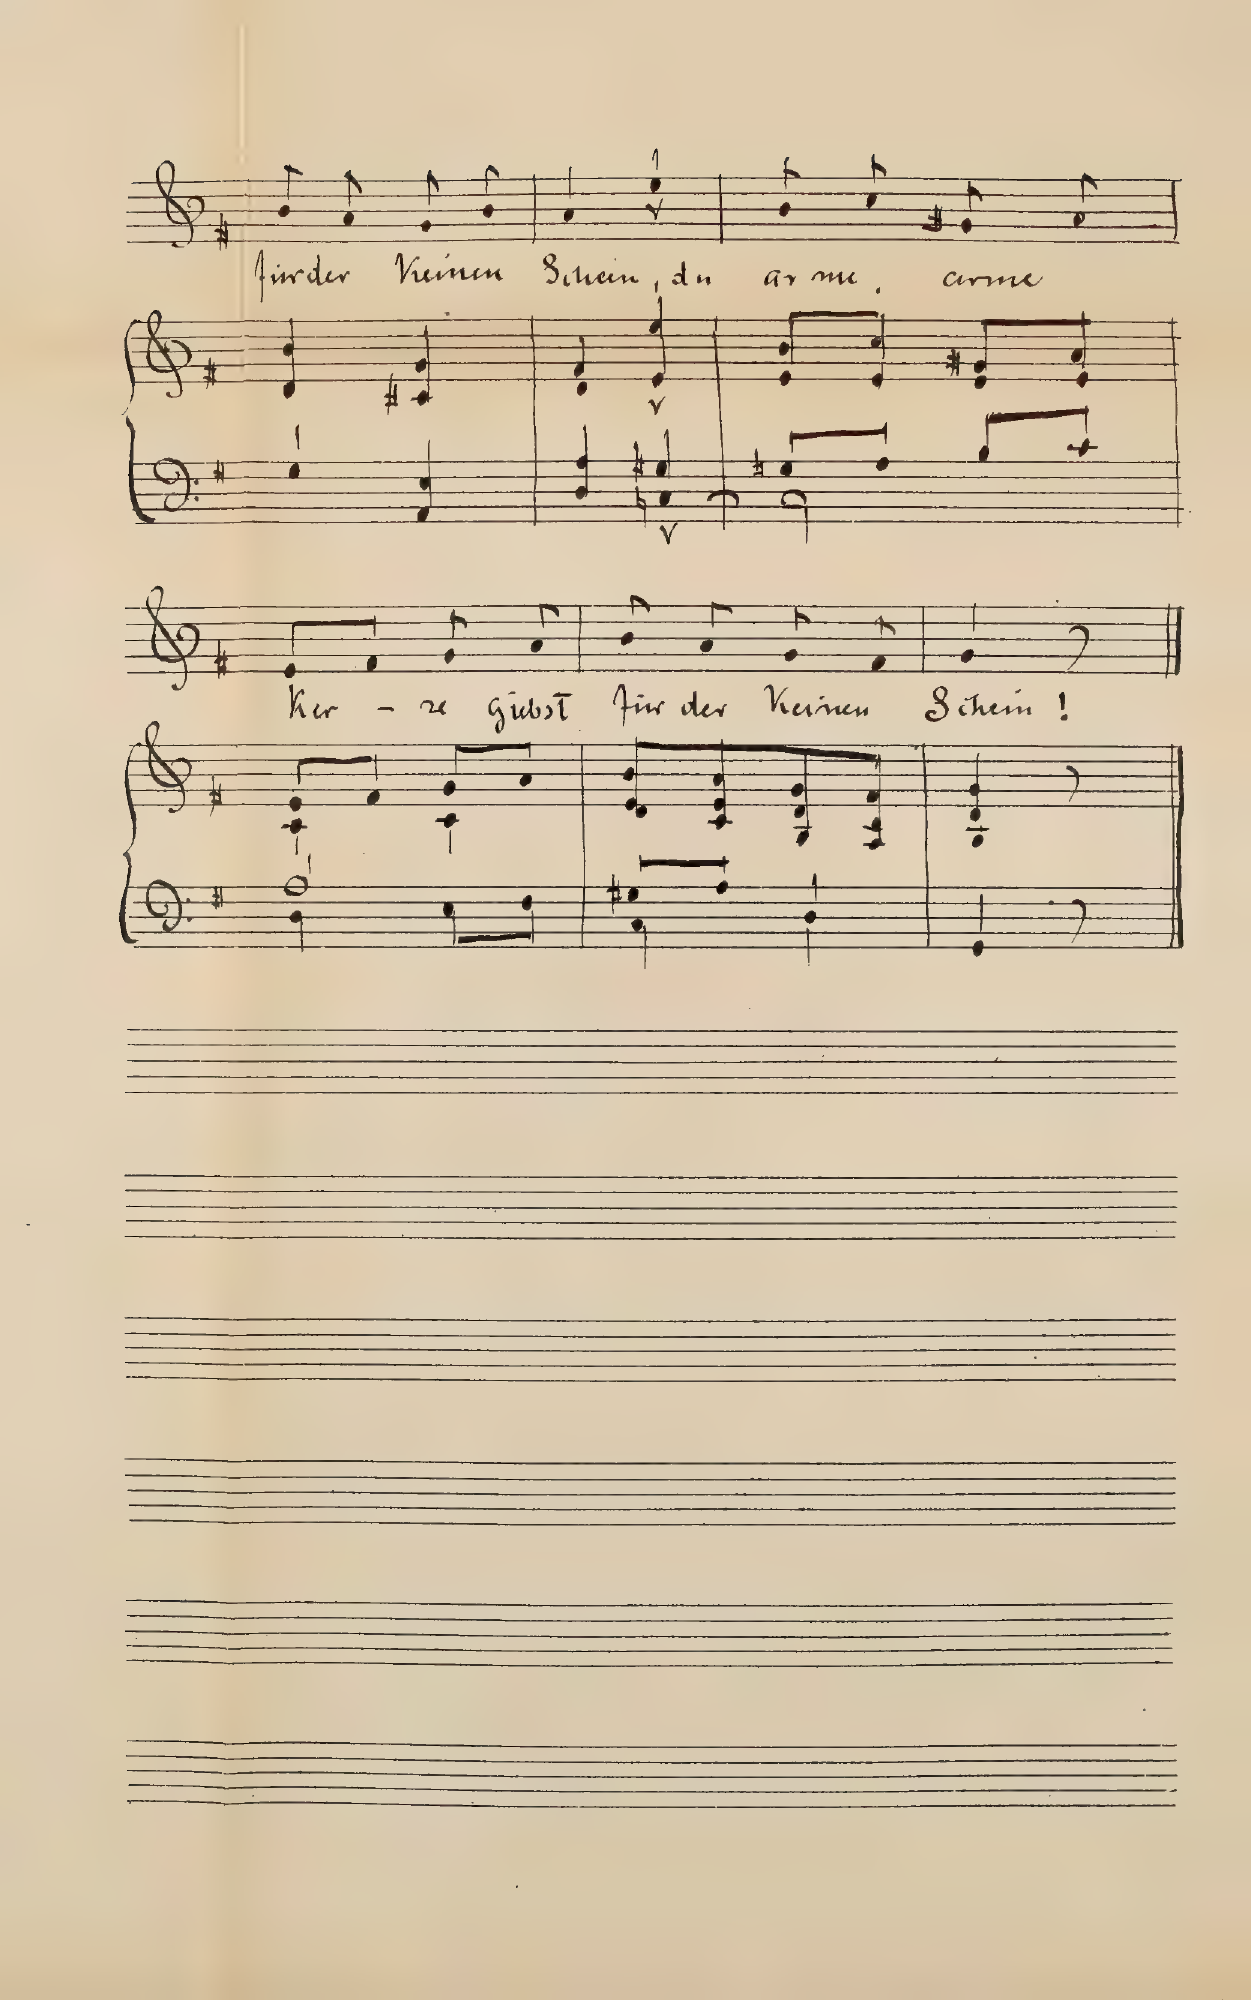 fürder Keinen Schein, du arme, arme
Ker - ze giebst für der Keinen Schein!